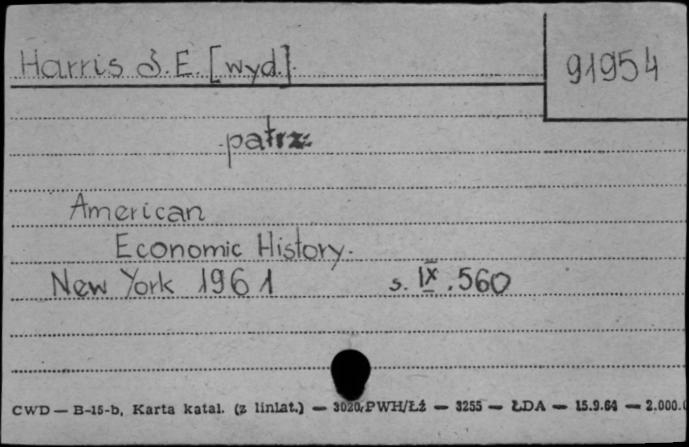 Harris S.E. [wyd.]
91954
patrz:
American
Economic History.
New York 1961 s. IX. 560
CWD — B-15-b, Karta katal. (z liniat.) — 3020/PWH/Łż — 3255 — ŁDA — 15.9.64 — 2.000.0